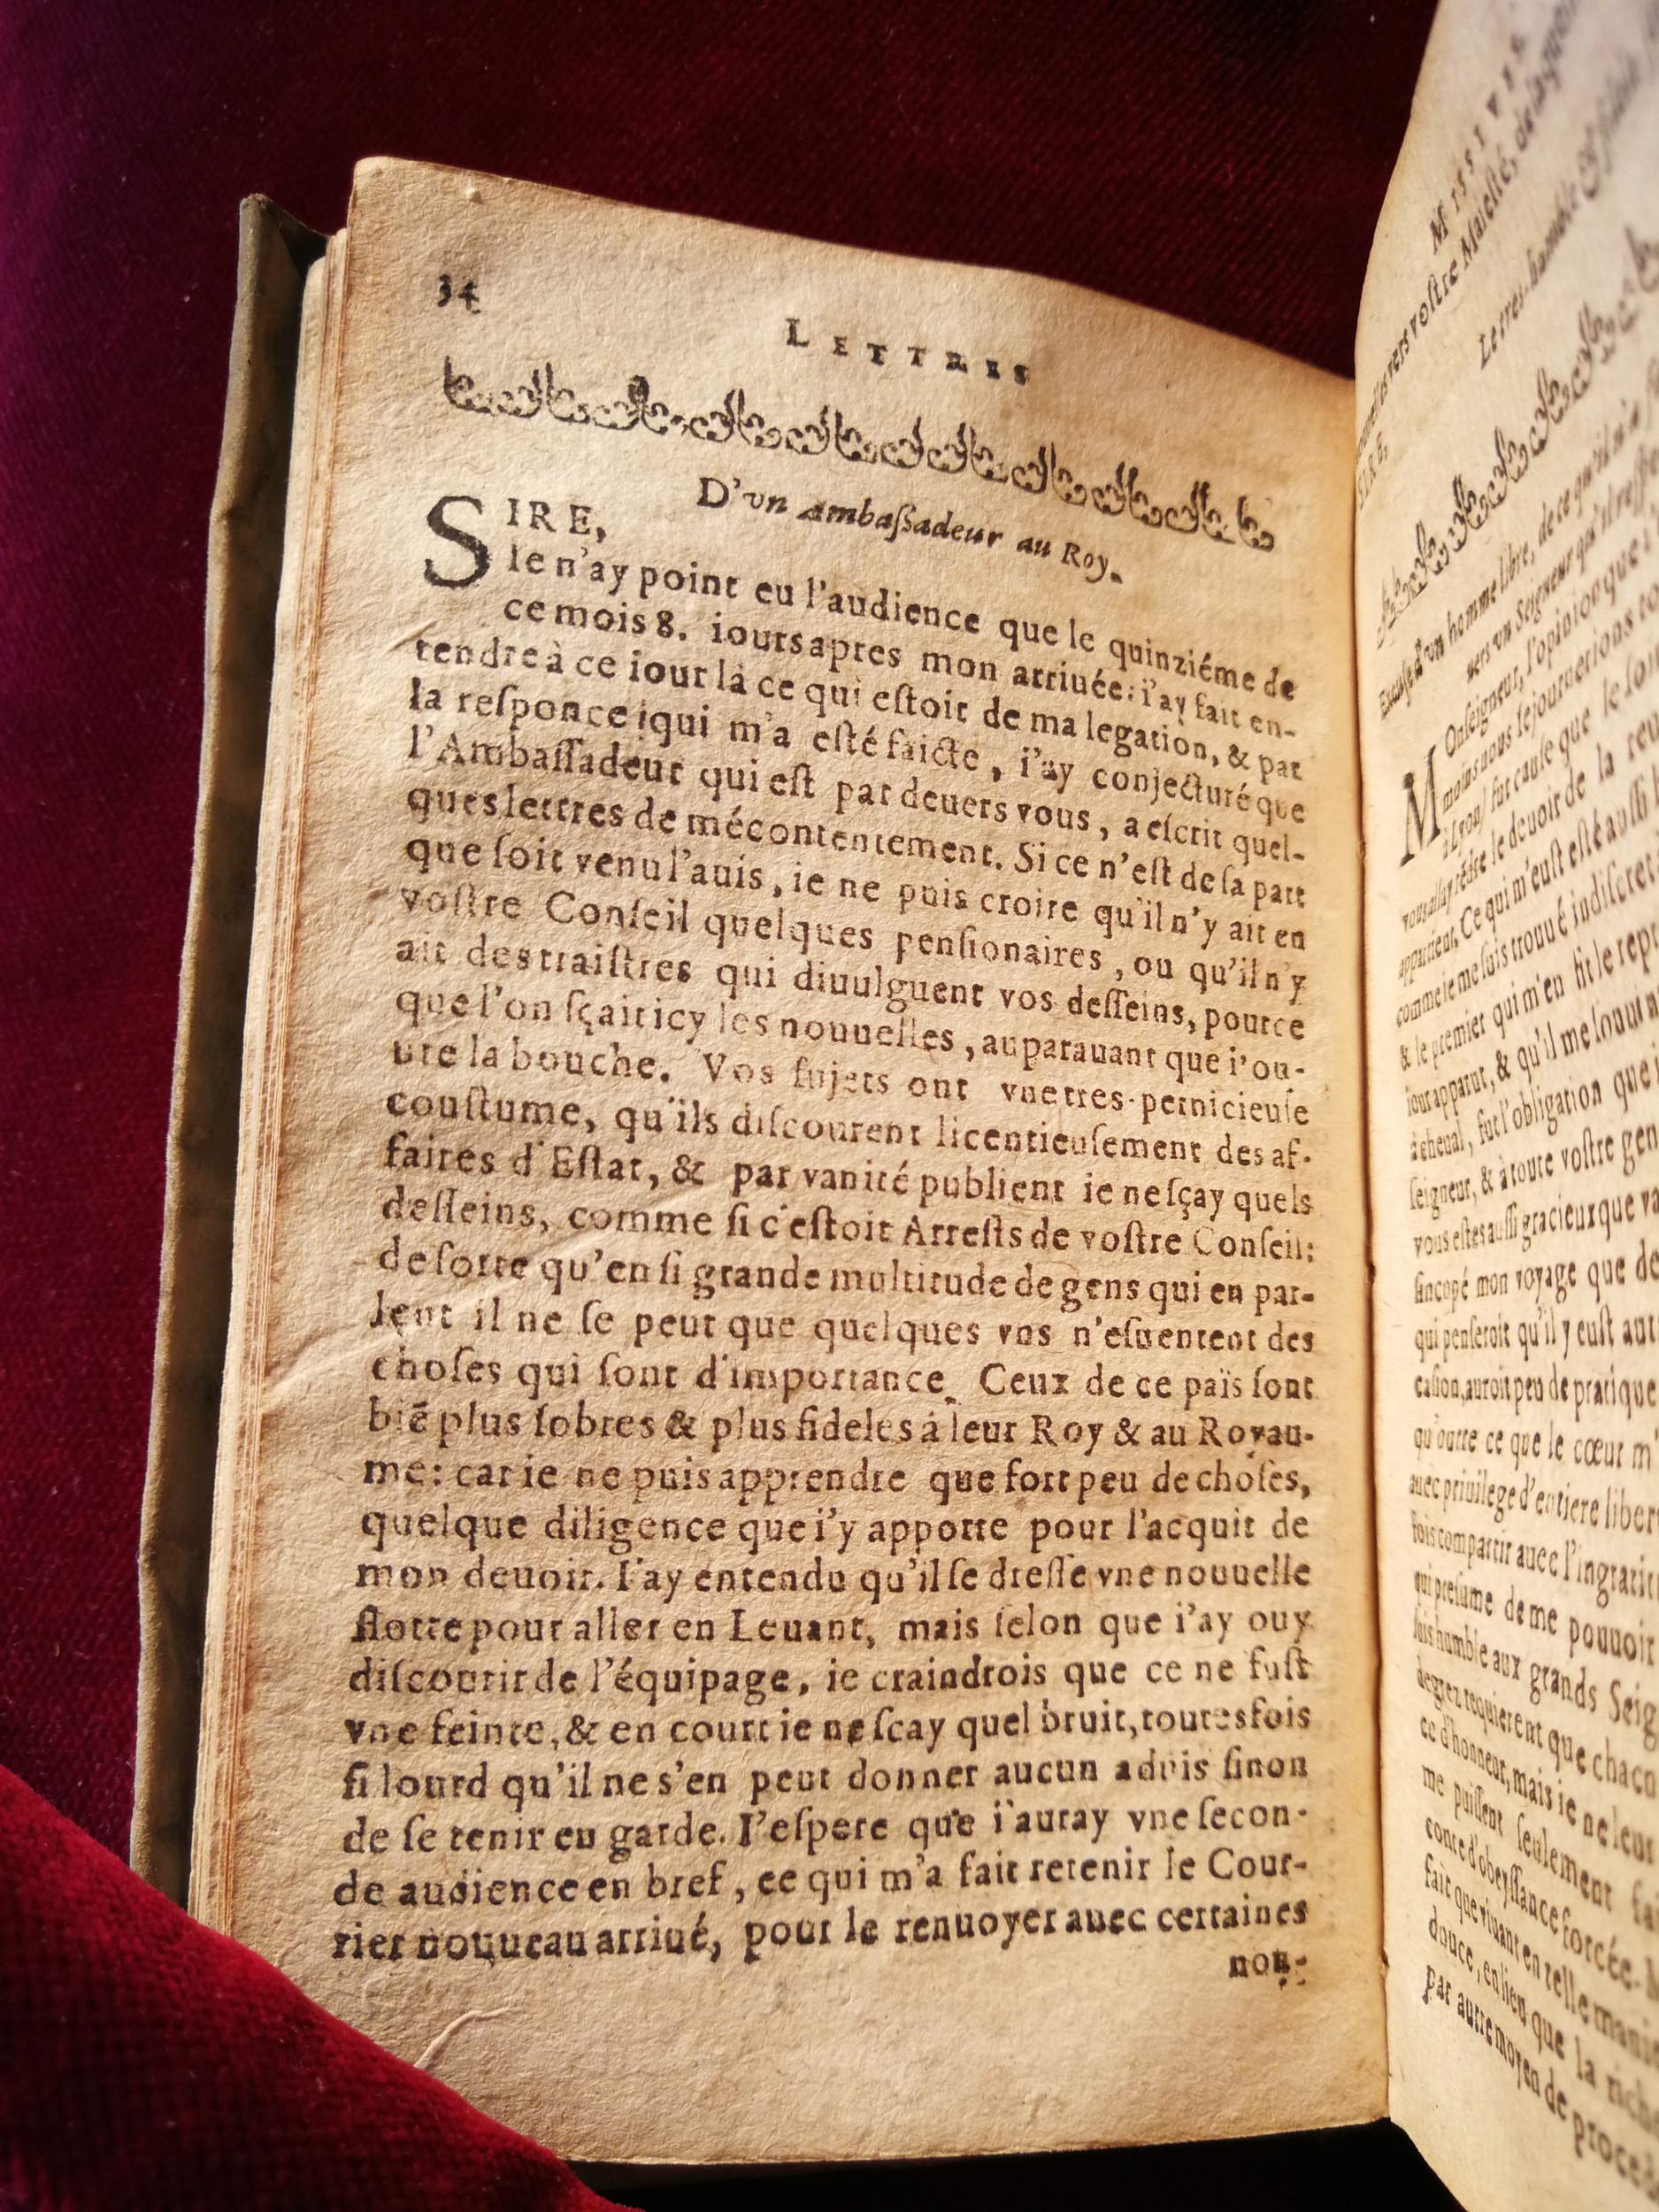 34
LETTRES
D'vn Ambaſſadeur au Roy.
SIRE,
Ie n'ay point eu l'audience que le quinziéme de
ce mois 8. iours apres mon arriuée: i'ay fait en-
tendre à ce iour là ce qui eſtoit de ma legation, & par
la reſponce qui m'a eſté faicte, i'ay conjecturé que
l'Ambaſſadeur qui eſt par deuers vous, a eſcrit quel-
ques lettres de mécontentement. Si ce n'eſt de ſa part
que ſoit venu l'auis, ie ne puis croire qu'il n'y ait en
voſtre Conſeil quelques penſionaires, ou qu'il n'y
ait des traiſtres qui diuulguent vos deſſeins, pource
que l'on ſçait icy les nouuelles, auparauant que i'ou-
ure la bouche. Vos ſujets ont vne tres-pernicieuſe
couſtume, qu'ils diſcourent licentieuſement des af-
faires d'Eſtat, & par vanité publient ie ne ſçay quels
deſſeins, comme ſi c'eſtoit Arreſts de voſtre Conſeil:
de ſorte qu'en ſi grande multitude de gens qui en par-
lent il ne ſe peut que quelques vns n'eſuentent des
choſes qui ſont d'importance. Ceux de ce païs ſont
biē plus ſobres & plus fideles à leur Roy & au Royau-
me: car ie ne puis apprendre que fort peu de choſes,
quelque diligence que i'y apporte pour l'acquit de
mon deuoir. I'ay entendu qu'il ſe dreſſe vne nouuelle
flotte pour aller en Leuant, mais ſelon que i'ay ouy
diſcourir de l'équipage, ie craindrois que ce ne fuſt
vne feinte, & en court ie ne ſcay quel bruit, toutesfois
ſi lourd qu'il ne s'en peut donner aucun aduis ſinon
de ſe tenir en garde. I'eſpere que i'auray vne ſecon-
de audience en bref, ce qui m'a fait retenir le Cour-
rier nouueau arriué, pour le renuoyer auec certaines
nou-
MISSIVES
vers voſtre Maieſté, de laquelle
SIRE,
Le tres-humble & fidele
Excuſe d'vn homme libre, de ce qu'il n'a
vers vn Seigneur qu'il reſpe
MOnſeigneur, l'opinion que i
moins nous ſejournerions to
à Lyon) fut cauſe que le ſoir
vous allay rēdre le deuoir de la reu
appartient. Ce qui m'euſt eſté auſſi
comme ie me ſuis trouué indiſcret
& le premier qui m'en fit le repr
iour apparut, & qu'il me ſouuint
à cheual, fut l'obligation que i
ſeigneur, & à toute voſtre gen
vous eſtes auſſi gracieux que va
ſincopé mon voyage que de
qui penſeroit qu'il y euſt aut
caſion, auroit peu de pratique
qu'outre ce que le cœur m'
auec priuilege d'entiere liber
fois compartir auec l'ingratit
qui preſume de me pouuoir
ſuis humble aux grands Seig
degrez requierent que chacu
ce d'honneur, mais ie ne leur
me puiſſent ſeulement fai
conte d'obeyſſance forcée.
fait que viuant en telle manie
douce, en lieu que la riche
par autre moyen de proced